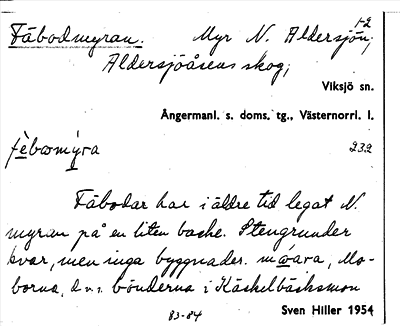 1-2
Fäbodmyran. Myr N. Aldersjön;
Aldersjöåsens skog;
Viksjö sn.
Ångermanl. s. doms. tg., Västernorrl. l.
232
Fäbodar har i äldre tid legat N.
myran på en liten backe. Stengrunder
kvar, men inga byggnader.
borna, d.v.s. bönderna i Käskelbäcksmon
83-84
Sven Hiller 1954